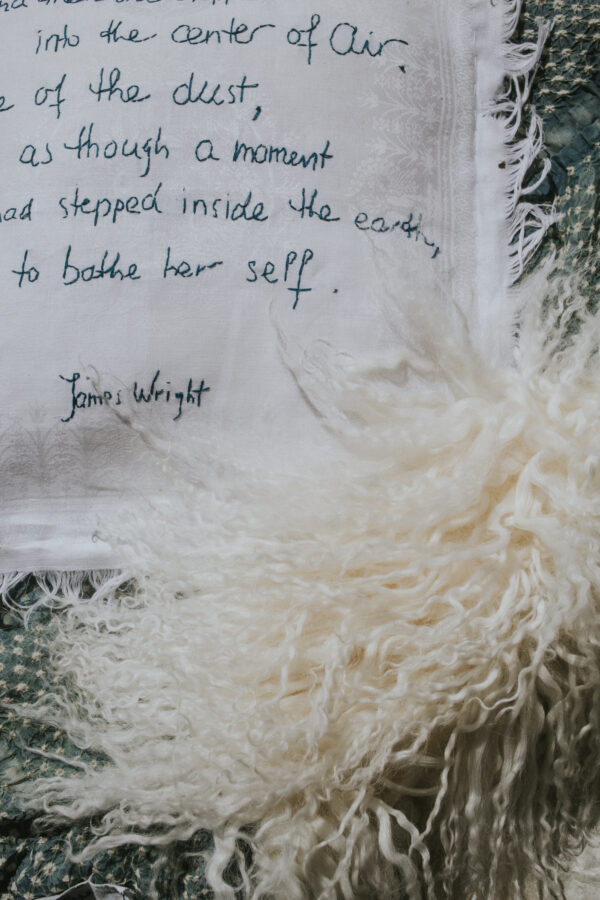 into the center of Air,
of the dust,
as though a moment
had stepped inside the earth,
to bathe her self.
James Wright